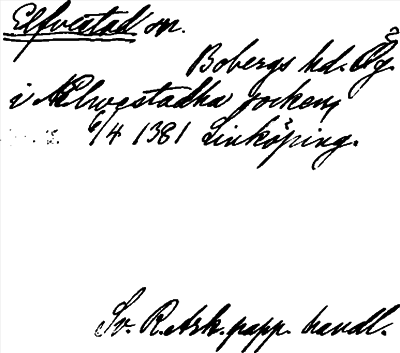 Elfvestad sn.
Bobergs hd. Ög.
i Ælwestadha soken,
6/4 1381 Linköping.
Sv. R. Ark. papp. handl.